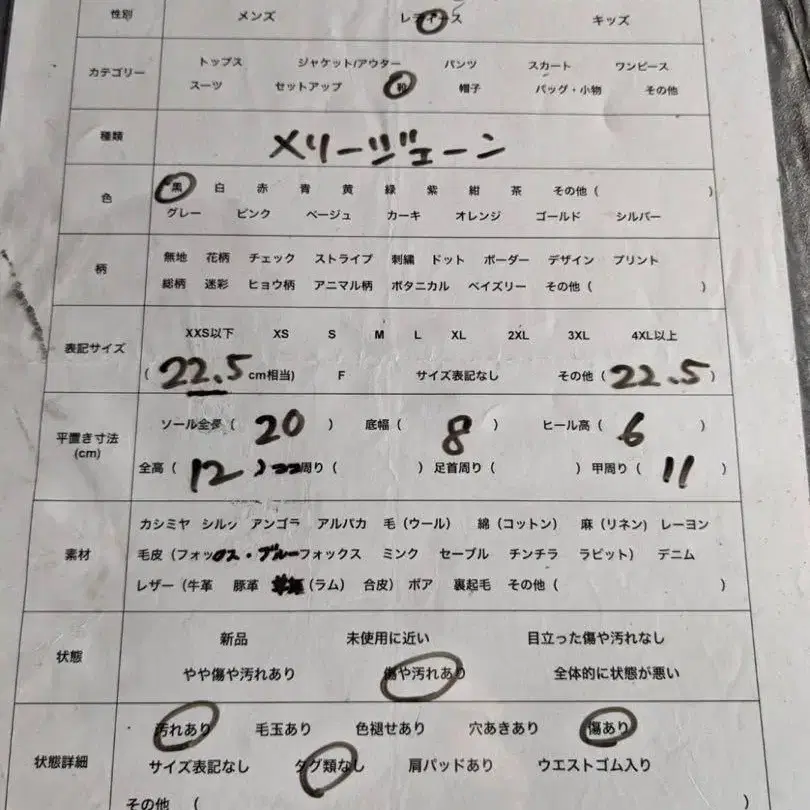 性別 メンズ レディース キッズ
カテゴリー
トップス ジャケット/アウター パンツ スカート ワンピース
スーツ セットアップ 靴 帽子 バッグ・小物 その他
種類 メリージェーン
色
黒 白 赤 青 黄 緑 紫 紺 茶 その他 ( )
グレー ピンク ベージュ カーキ オレンジ ゴールド シルバー
柄
無地 花柄 チェック ストライプ 刺繍 ドット ボーダー デザイン プリント
総柄 迷彩 ヒョウ柄 アニマル柄 ボタニカル ペイズリー その他 ( )
表記サイズ
XXS以下 XS S M L XL 2XL 3XL 4XL以上
( 22.5 cm相当) F サイズ表記なし その他 ( 22.5 )
平置き寸法
(cm)
ソール全長 ( 20 ) 底幅 ( 8 ) ヒール高 ( 6 )
全高 ( 12 ) 周り ( ) 足首周り ( ) 甲周り ( 11 )
素材
カシミヤ シルク アンゴラ アルパカ 毛 (ウール) 綿 (コットン) 麻 (リネン) レーヨン
毛皮 (フォックス・ブルーフォックス ミンク セーブル チンチラ ラビット) デニム
レザー (牛革 豚革 (ラム) 合皮) ボア 裏起毛 その他 ( )
状態
新品 未使用に近い 目立った傷や汚れなし
やや傷や汚れあり 傷や汚れあり 全体的に状態が悪い
状態詳細
汚れあり 毛玉あり 色褪せあり 穴あきあり 傷あり
サイズ表記なし タグ類なし 肩パッドあり ウエストゴム入り
その他 ( )